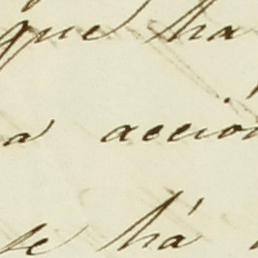 que ha
a acción
se há